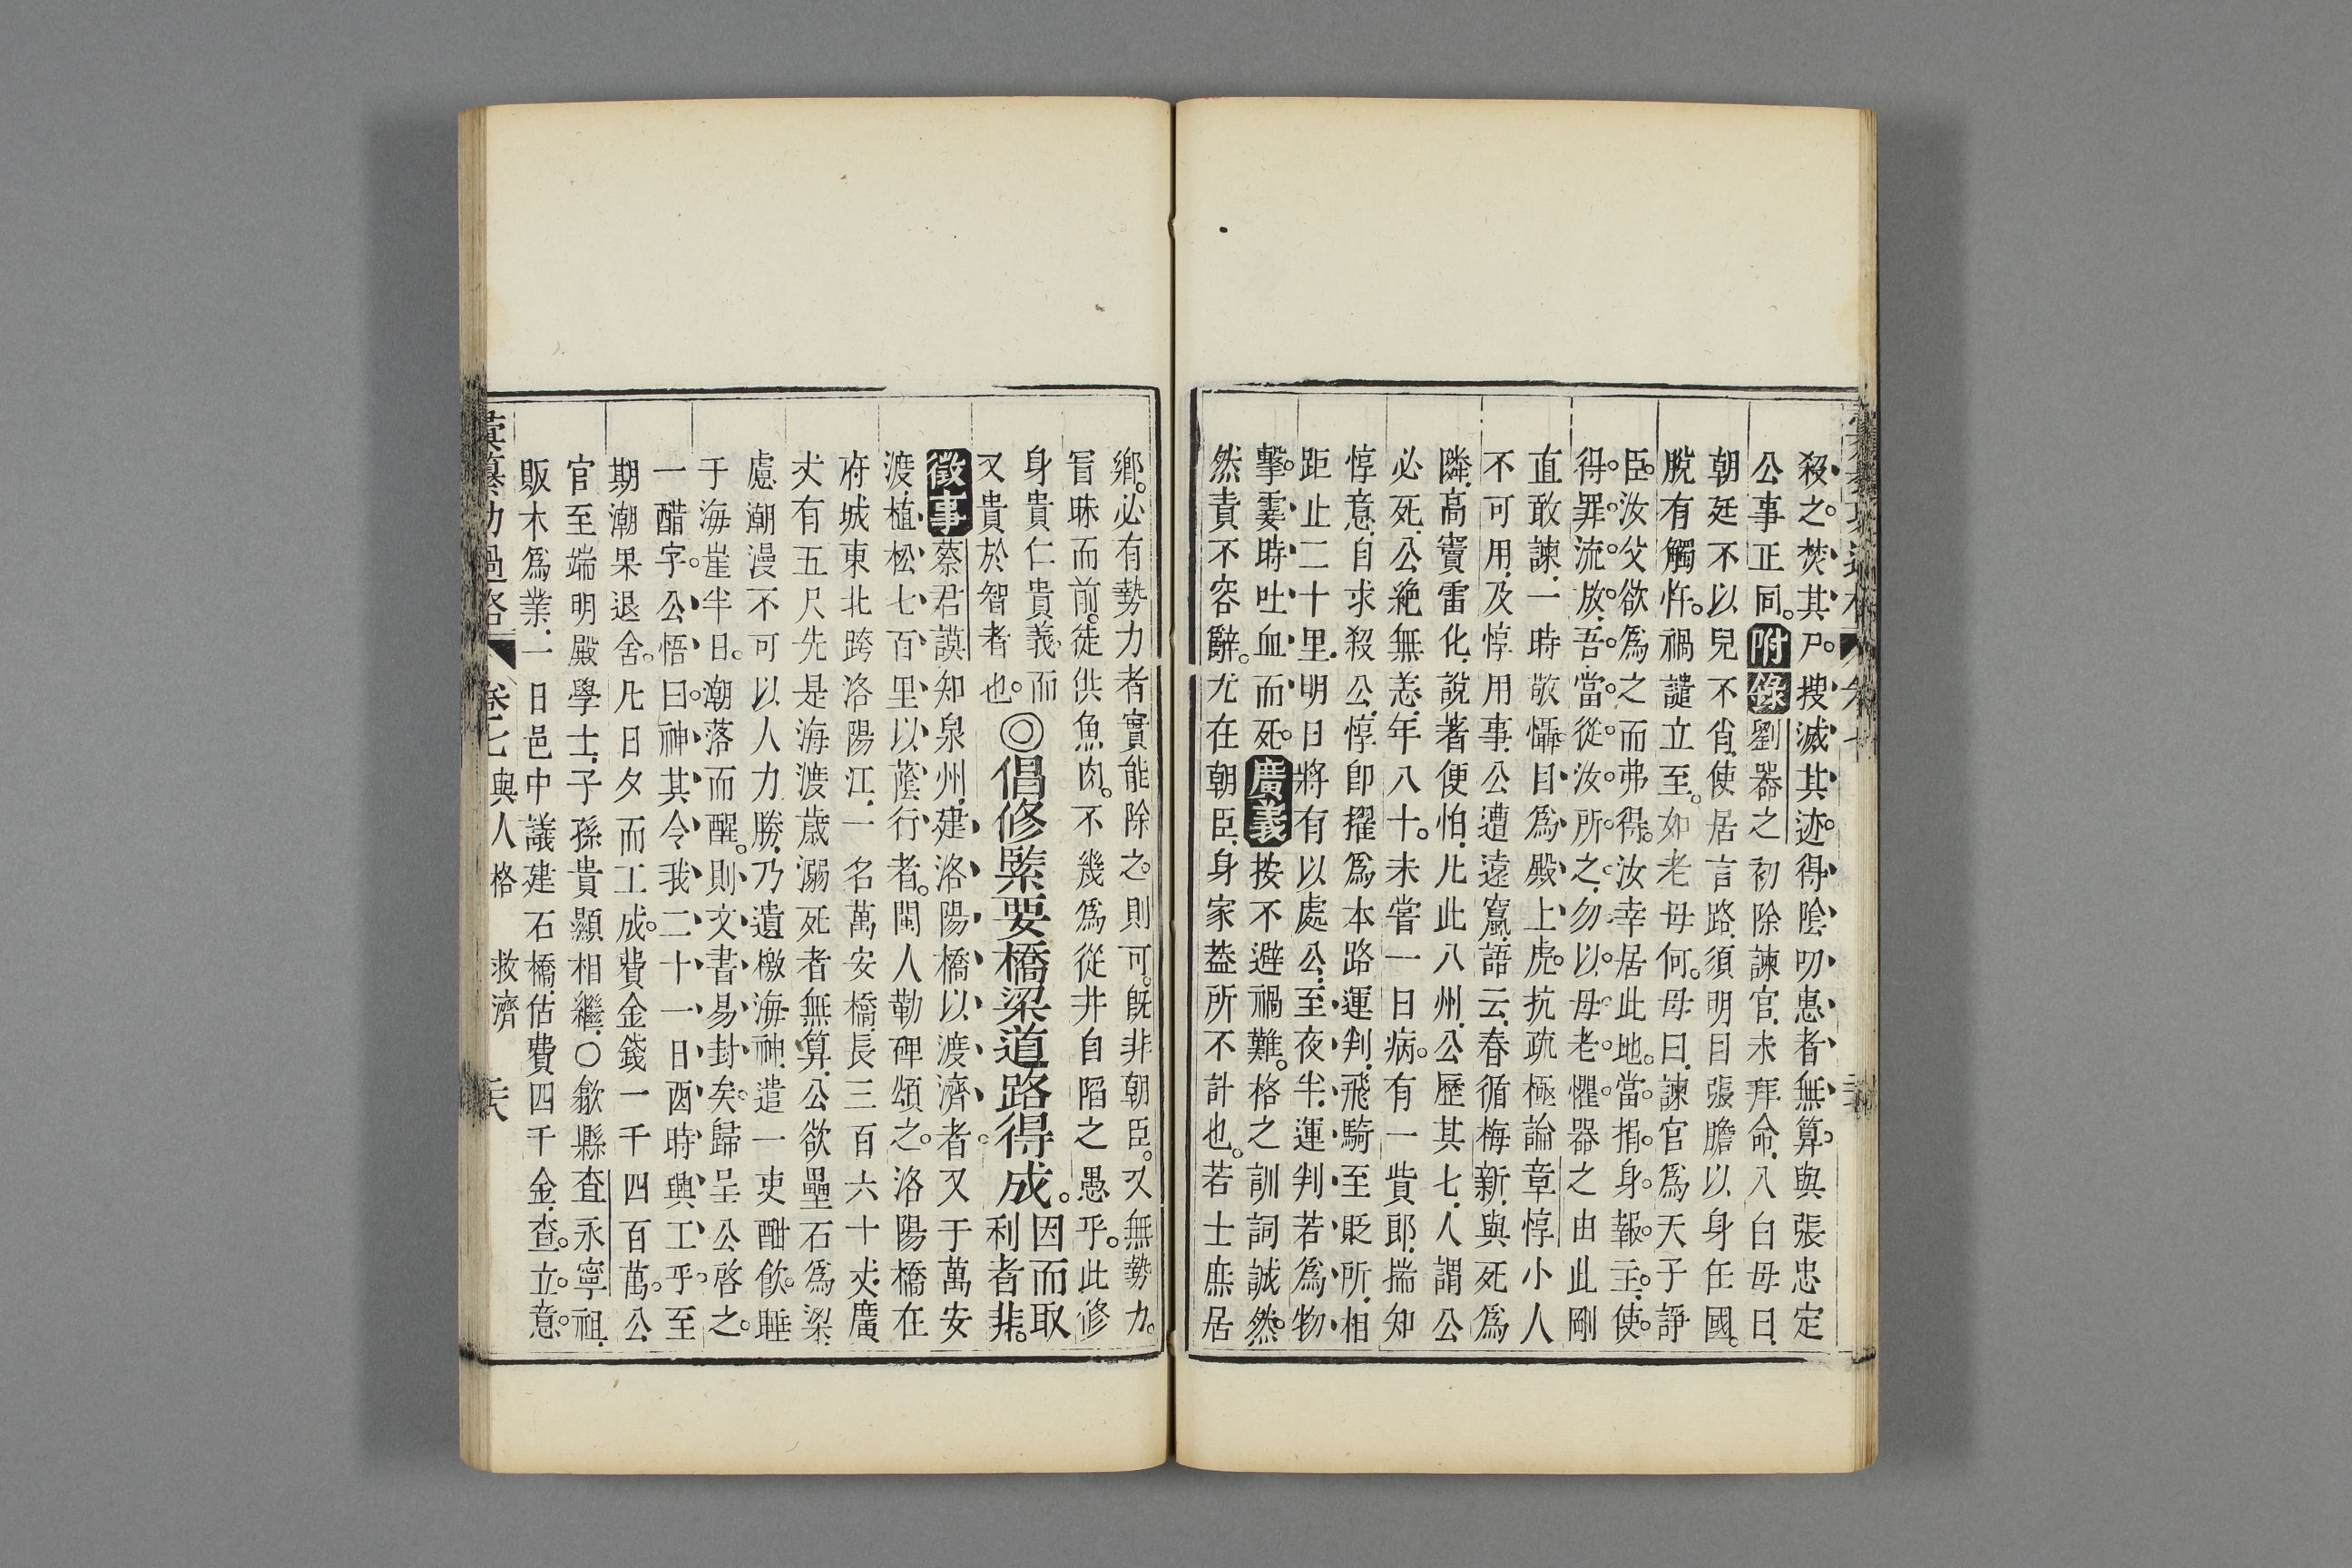 殺之。焚其尸。搜滅其迹。得陰叨惠者無算。與張忠定
公事正同。附錄劉器之初除諫官未拜命入白母曰
朝廷不以兒不肖使居言路須明目張膽以身任國。
脫有觸忤。禍譴立至。如老母何。母曰諫官爲天子諍
臣汝父欲爲之而弗得。汝幸居此地。當捐身報主。使
得罪。流放。吾當從汝所之。勿以母老懼。器之由此剛
直敢諫一時敬懾目爲殿上虎。抗疏極論章惇小人
不可用及惇用事公遭遠竄語云春循梅新與死爲
隣高竇雷化說著便怕凡此八州公歷其七人謂公
必死公絶無恙年八十。未嘗一日病。有一貲郎揣知
惇意自求殺公惇卽擢爲本路運判飛騎至貶所相
距止二十里明日將有以處公至夜半運判若爲物
擊。霎時吐血而死。廣義按不避禍難。格之訓詞誠然。
然責不容辭。尤在朝臣身家葢所不計也。若士庶居
鄉。必有勢力者實能除之。則可。旣非朝臣。又無勢力。
冐昧而前。徒供魚肉。不幾爲從井自陷之愚乎。此修
身貴仁貴義而
又貴於智者也。
◎倡修緊要橋梁道路得成。
因而取
利者非。
徵事蔡君謨知泉州建洛陽橋以渡濟者又于萬安
渡植松七百里以蔭行者。閩人勒碑頌之。洛陽橋在
府城東北跨洛陽江一名萬安橋長三百六十丈廣
丈有五尺先是海渡歲溺死者無算公欲壘石爲梁
慮潮漫不可以人力勝乃遺檄海神遣一吏酣飮睡
于海崖半日。潮落而醒。則文書易封矣。歸呈公啓之。
一醋字。公悟曰神其令我二十一日酉時興工乎至
期潮果退舍。凡日夕而工成。費金錢一千四百萬。公
官至端明殿學士子孫貴顯相繼○歙縣査永寧祖
販木爲業一日邑中議建石橋估費四千金査立意。
彙纂功過格 卷七 與人格 救濟